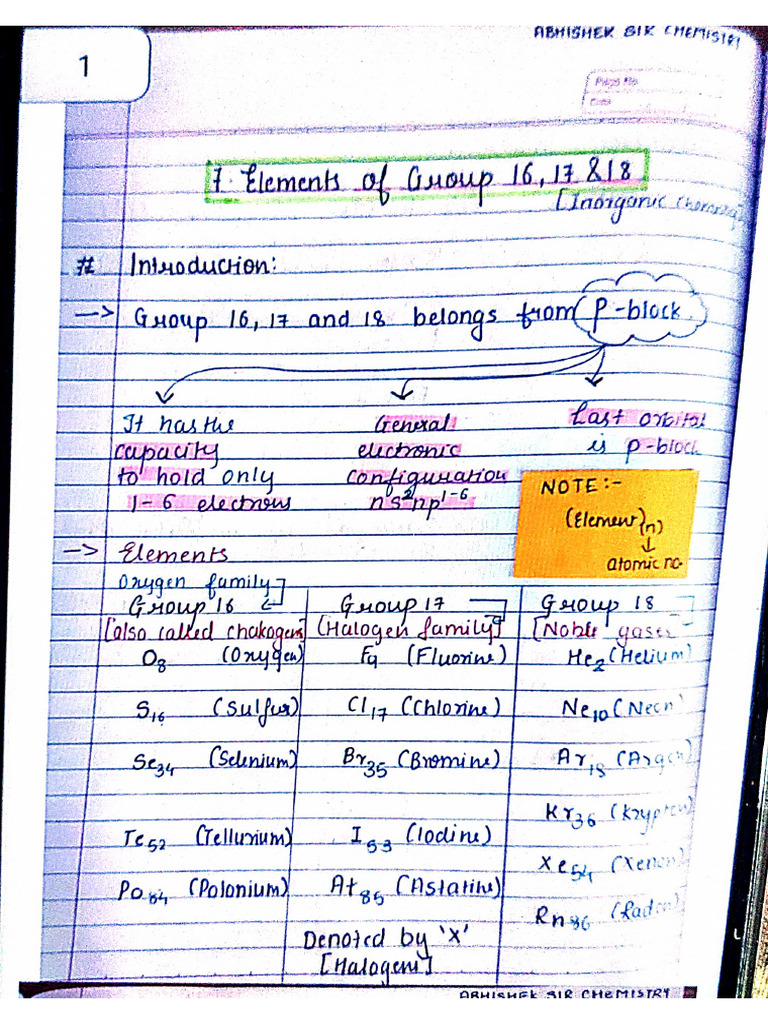 ABHISHEK SIR CHEMISTRY
1
Page No
Date
7. Elements of Group 16, 17 & 18
[Inorganic Chemistry]
# Introduction:
-> Group 16, 17 and 18 belongs from P-block
It has the capacity to hold only 1-6 electrons
General electronic configuration ns²np¹⁻⁶
Last orbital is p-block
NOTE:-
(Element)n)
↓
atomic no.
-> Elements
Oxygen family
Group 16 Group 17 Group 18
[also called chalcogens] [Halogen family] [Noble gases]
O₈ (Oxygen) F₉ (Fluorine) He₂ (Helium)
S₁₆ (Sulfur) Cl₁₇ (Chlorine) Ne₁₀ (Neon)
Se₃₄ (Selenium) Br₃₅ (Bromine) Ar₁₈ (Argon)
Kr₃₆ (Krypton)
Te₅₂ (Tellurium) I₅₃ (Iodine)
Xe₅₄ (Xenon)
Po₈₄ (Polonium) At₈₅ (Astatine)
Rn₈₆ (Radon)
Denoted by 'X'
[Halogens]
ABHISHEK SIR CHEMISTRY